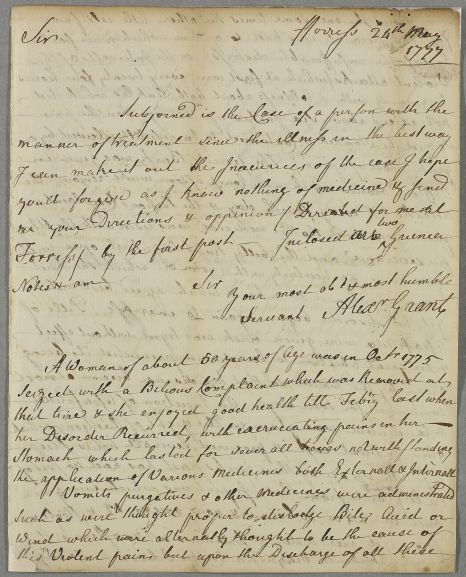 Sir
fforress 24th May
1777
Subjoined is the Case of a person with the
manner of treatment since the illness in the best way
I can make it out the Inacuricies of the case I hope
you'll forgive as I know nothing of medicine & send
me your Directions & oppinion / Directed for me at
Forress / by the first post — Inclosed are two Guinea
Notes & am Sir
your most obt & most humble
Servant Alexr Grant
A Woman of about 50 years of Age was in Octr 1775
Seized with a Bilious Complaint which was Removed at
that time & she enjoyed good health till Febry last when
her Disorder Recurred, with excruciating pains in her
Stomach which lasted for severall hours notwithstanding
the application of Various Medicines both Externall & Internall
Vomits purgatives & other Medicines were administrated
such as were thought proper to dislodge Bile, Acid or
Wind which were alternatly thought to be the cause of
the Violent pain, but upon the Discharge of all these